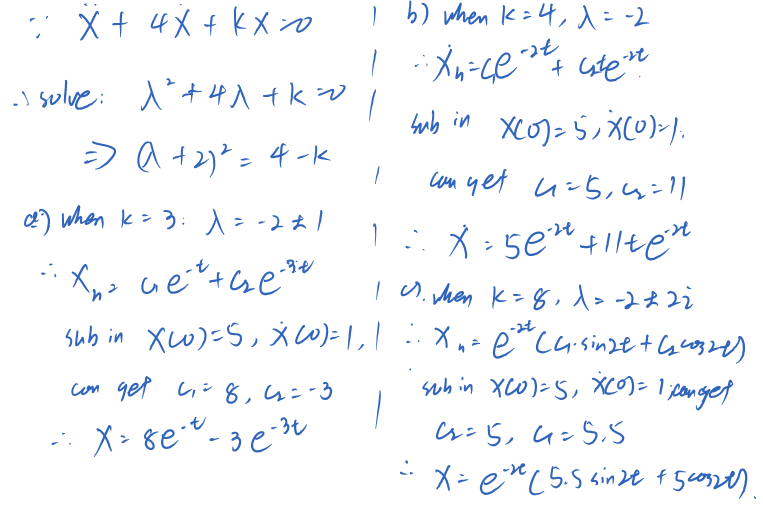 ∵ ẍ + 4ẋ + kx = 0
∴ solve: λ² + 4λ + k = 0
⇒ (λ + 2)² = 4 - k
a) when k = 3: λ = -2 ± 1
∴ xₕ = c₁e^{-t} + c₂e^{-3t}
sub in x(0) = 5, ẋ(0) = 1,
can get c₁ = 8, c₂ = -3
∴ x = 8e^{-t} - 3e^{-3t}
b) when k = 4, λ = -2
∴ xₕ = c₁e^{-2t} + c₂te^{-2t}
sub in x(0) = 5, ẋ(0) = 1.
can get c₁ = 5, c₂ = 11
∴ x = 5e^{-2t} + 11te^{-2t}
c). when k = 8, λ = -2 ± 2i
∴ xₕ = e^{-2t}(c₁·sin2t + c₂cos2t)
sub in x(0) = 5, ẋ(0) = 1, can get
c₂ = 5, c₁ = 5.5
∴ x = e^{-2t}(5.5 sin2t + 5cos2t).